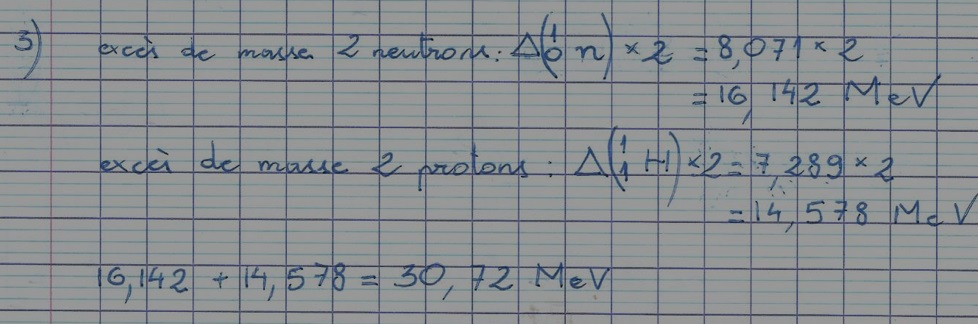 3) excès de masse 2 neutrons : Δ(¹₀n) × 2 = 8,071 × 2
= 16,142 MeV
excès de masse 2 protons : Δ(¹₁H) × 2 = 7,289 × 2
= 14,578 MeV
16,142 + 14,578 = 30,72 MeV